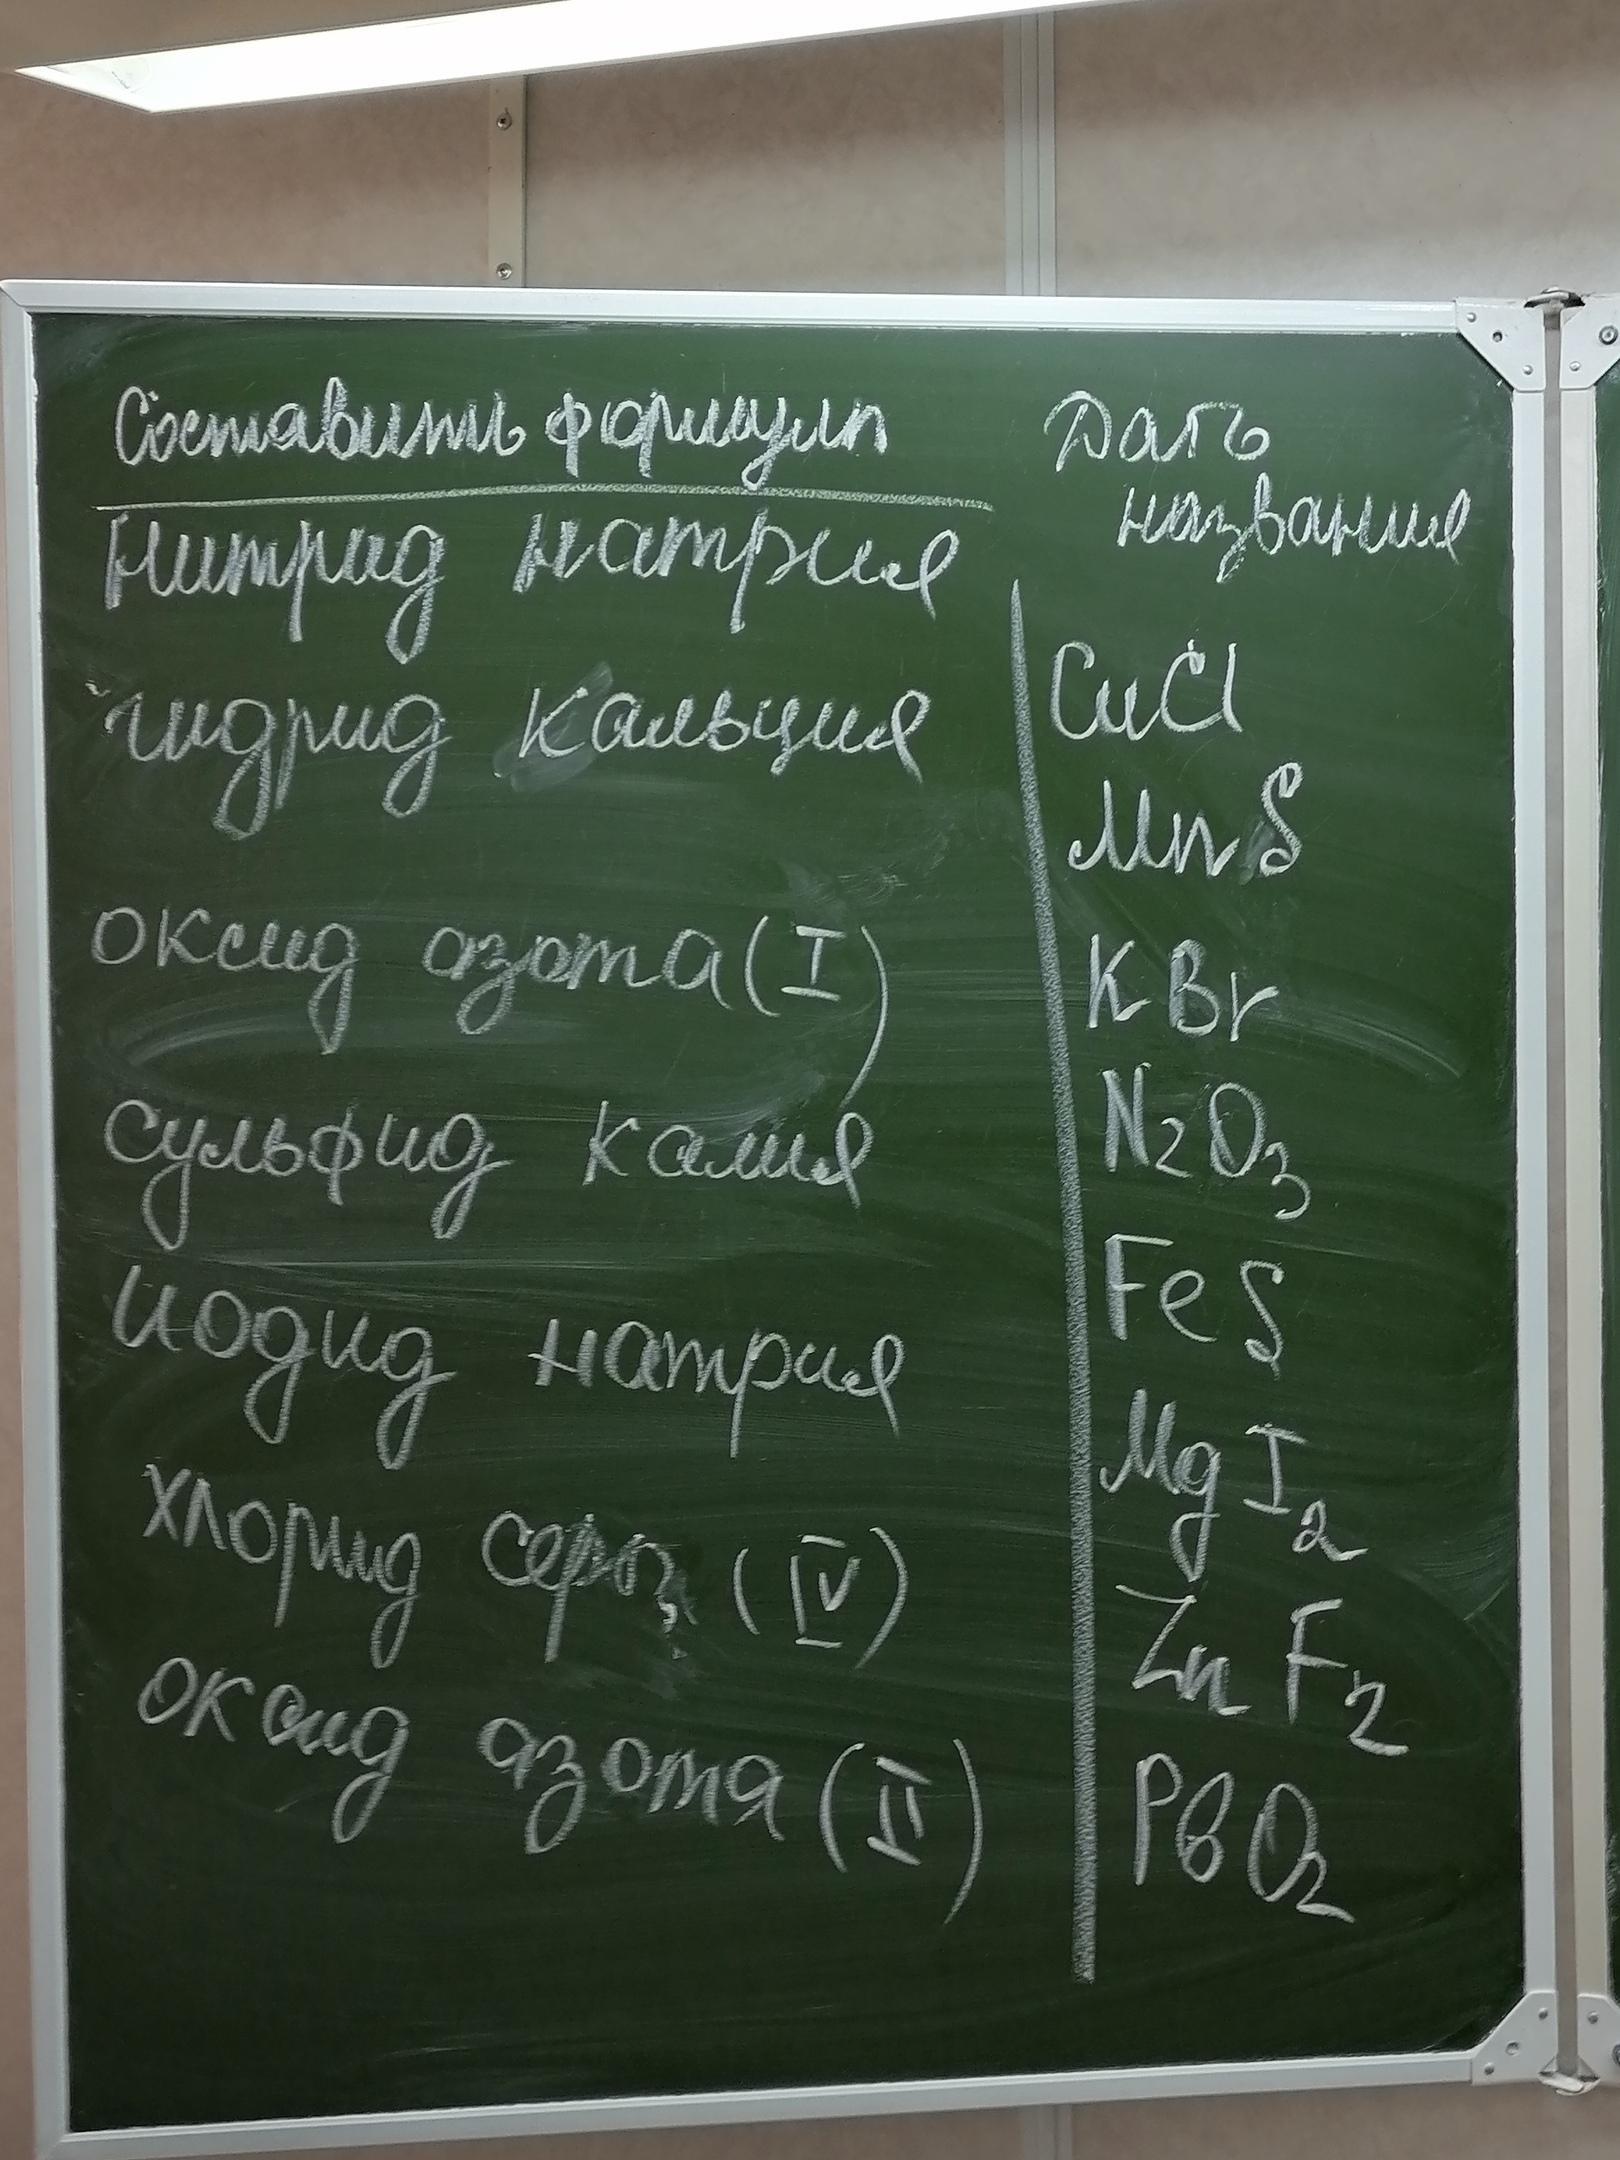 Составить формулы
Нитрид натрия
гидрид кальция
оксид азота (I)
сульфид калия
йодид натрия
хлорид серы (IV)
оксид азота (II)
Дать
названия
CuCl
MnS
KBr
N₂O₃
FeS
MgI₂
ZnF₂
PbO₂